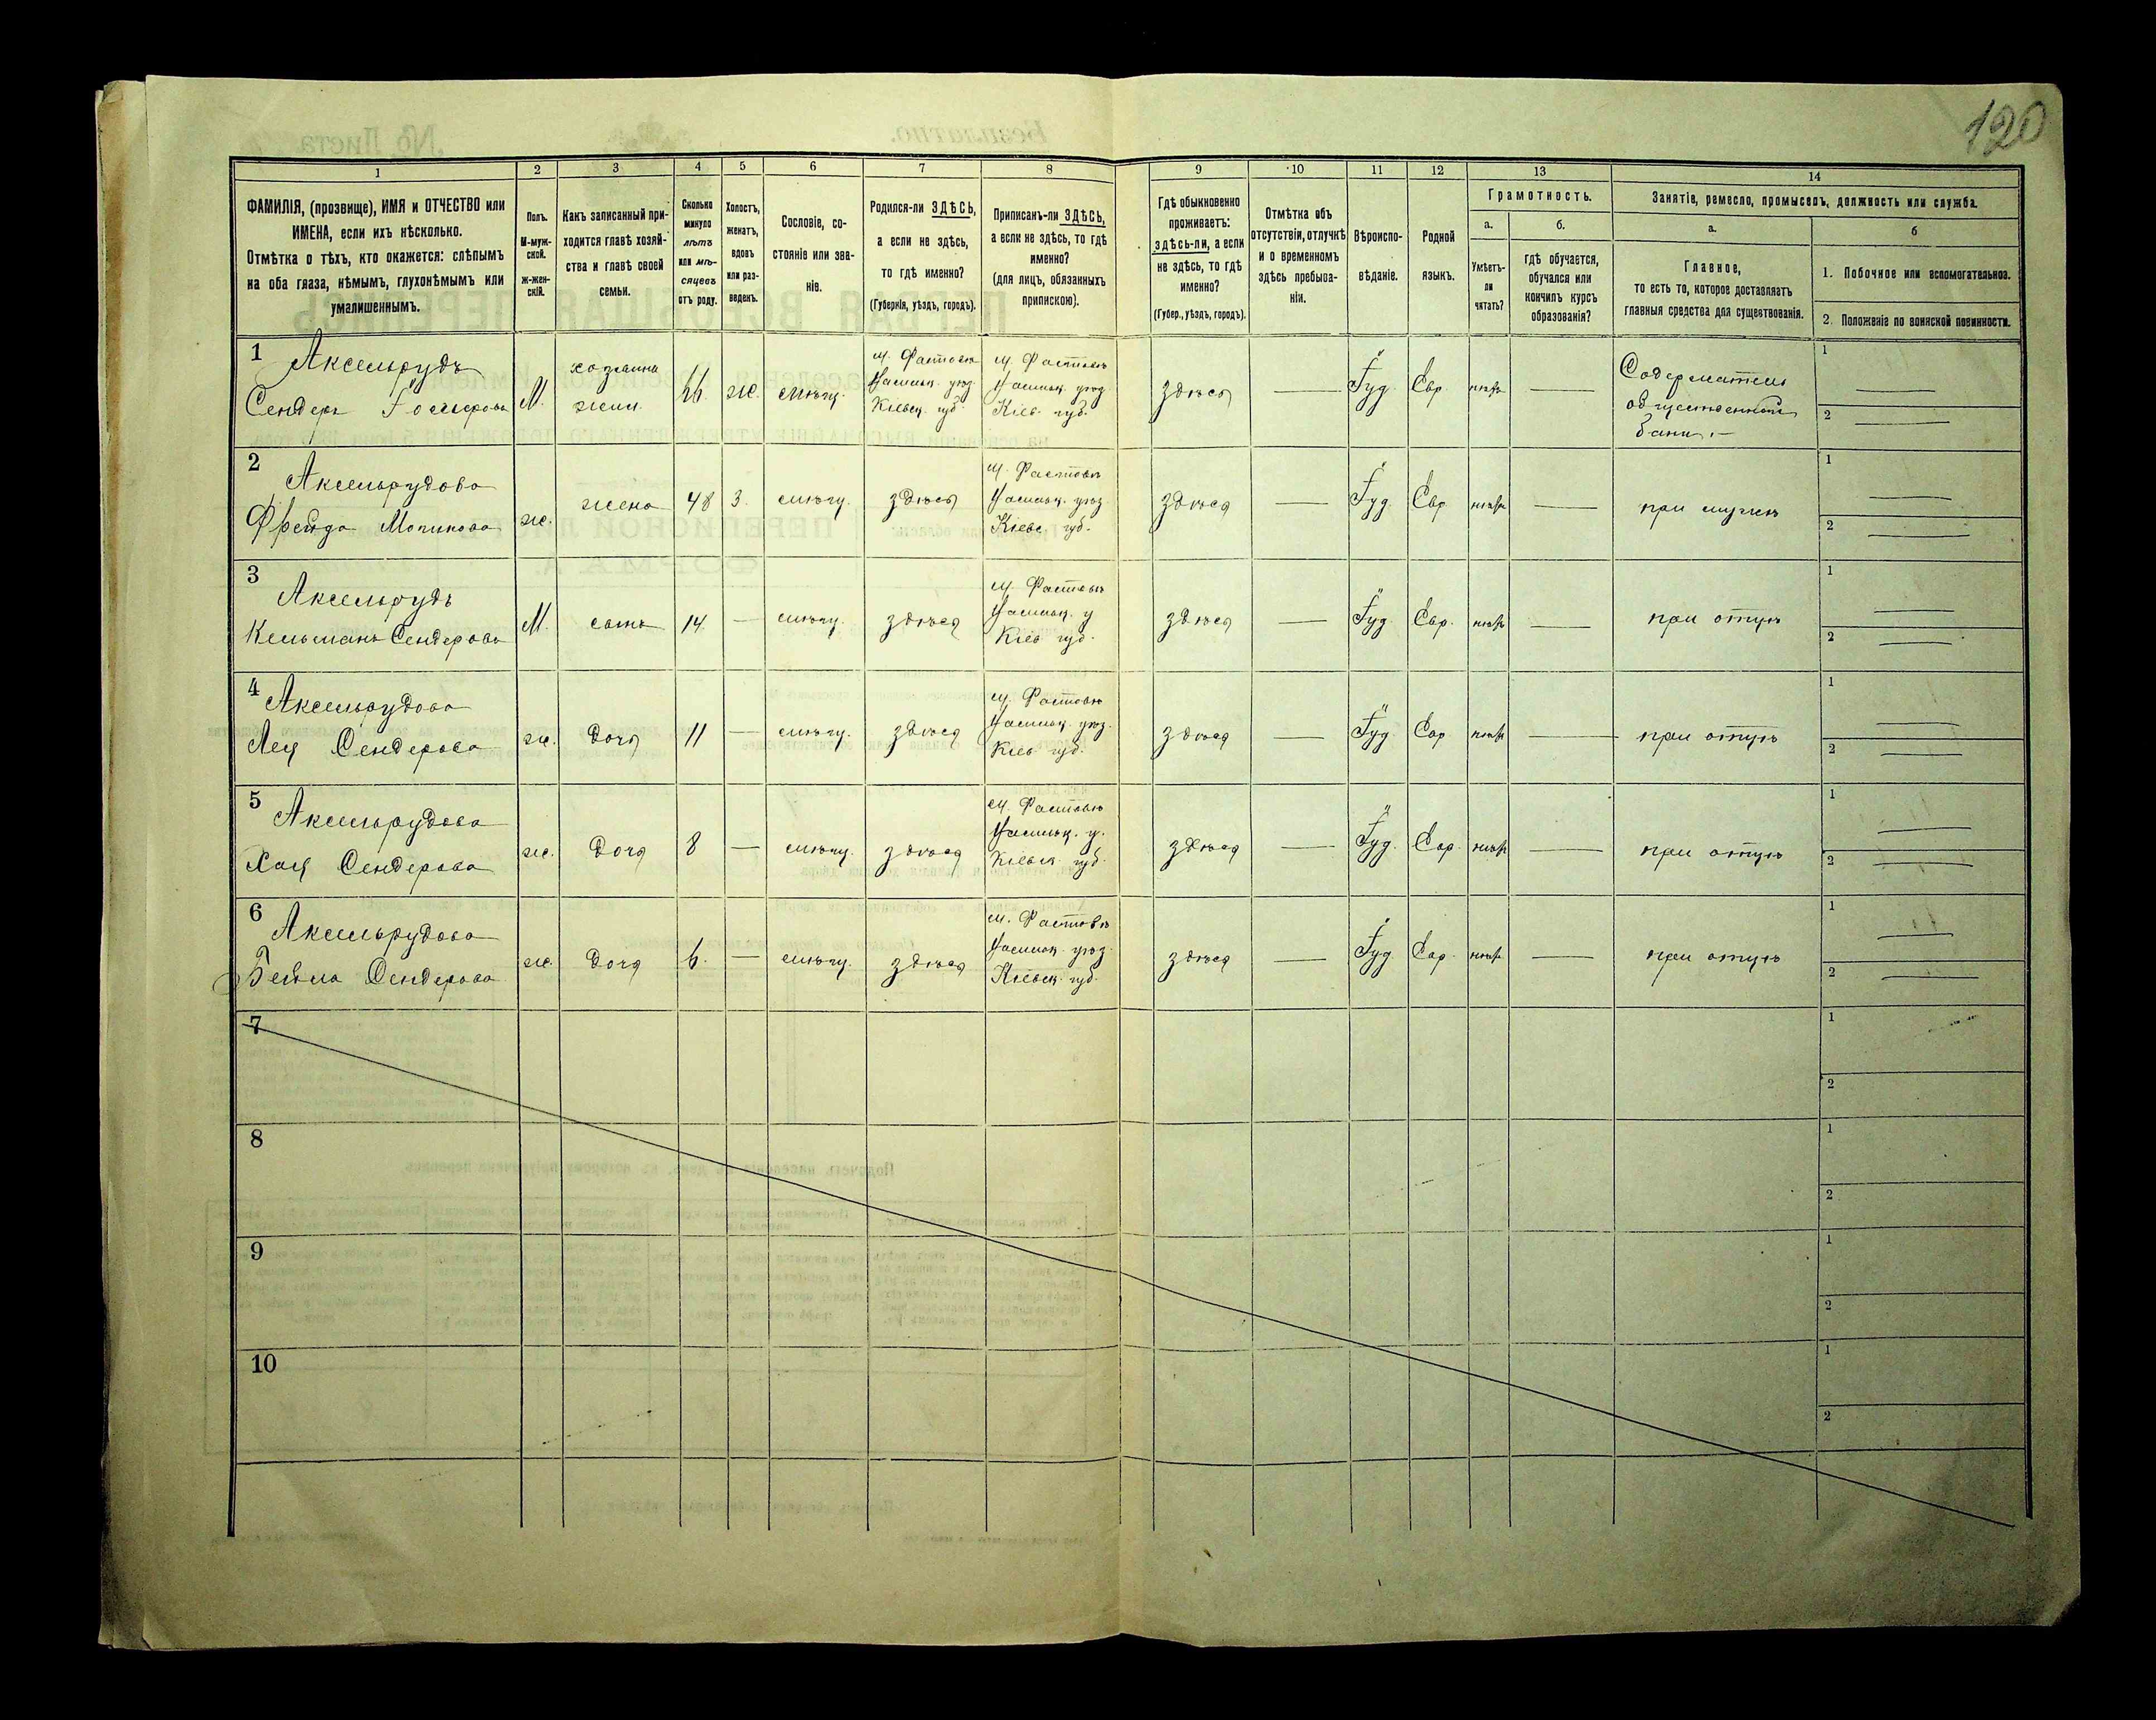 120
1
2
3
4
5
6
7
8
9
10
11
12
13
14
ФАМИЛІЯ, (прозвище), ИМЯ и ОТЧЕСТВО или
ИМЕНА, если ихъ нѣсколько.
Отмѣтка о тѣхъ, кто окажется: слѣпымъ
на оба глаза, нѣмымъ, глухонѣмымъ или
умалишеннымъ.
Полъ.
М-муж-
ской.
Ж-жен-
скій.
Какъ записанный при-
ходится главѣ хозяй-
ства и главѣ своей
семьи.
Сколько
минуло
лѣтъ
или мѣ-
сяцевъ
отъ роду.
Холостъ,
женатъ,
вдовъ
или раз-
веденъ.
Сословіе, со-
стояніе или зва-
ніе.
Родился-ли ЗДѢСЬ,
а если не здѣсь,
то гдѣ именно?
(Губернія, уѣздъ, городъ).
Приписанъ-ли ЗДѢСЬ,
а если не здѣсь, то гдѣ
именно?
(для лицъ, обязанныхъ
припискою).
Гдѣ обыкновенно
проживаетъ:
здѣсь-ли, а если
не здѣсь, то гдѣ
именно?
(Губер., уѣздъ, городъ).
Отмѣтка объ
отсутствіи, отлучкѣ
и о временномъ
здѣсь пребыва-
ніи.
Вѣроиспо-
вѣданіе.
Родной
языкъ.
Грамотность.
а.
Умѣетъ-
ли
читать?
б.
гдѣ обучается,
обучался или
кончилъ курсъ
образованія?
Занятіе, ремесло, промыселъ, должность или служба.
а.
Главное,
то есть то, которое доставляетъ
главныя средства для существованія.
б
1. Побочное или вспомогательное.
2. Положеніе по воинской повинности.
1
Аксельрудъ
Сендеръ
М.
хозяинъ
66
ж.
мѣщ.
м. Фастовъ
Васильк. уѣзд.
Кіевск. губ.
м. Фастовъ
Васильк. уѣзд.
Кіев. губ.
здѣсь
—
Іуд.
Евр.
—
Содержатель
общественной
бани.—
1 —
2 —
2
Аксельрудова
Фрейда
ж.
жена
48
З.
мѣщ.
здѣсь
м. Фастовъ
Васильк. уѣзд.
Кіевс. губ.
здѣсь
—
Іуд.
Евр.
—
при мужѣ
1 —
2 —
3
Аксельрудъ
Кельманъ Сендеровъ
М.
сынъ
14
—
мѣщ.
здѣсь
м. Фастовъ
Васильк. у
Кіев. губ.
здѣсь
—
Іуд.
Евр.
—
при отцѣ
1 —
2 —
4
Аксельрудова
Лея Сендерова
ж.
дочь
11
—
мѣщ.
здѣсь
м. Фастовъ
Васильк. уѣзд.
Кіев. губ.
здѣсь
—
Іуд.
Евр.
—
при отцѣ
1 —
2 —
5
Аксельрудова
Хая Сендерова
ж.
дочь
8
—
мѣщ.
здѣсь
м. Фастовъ
Васильк. у.
Кіевск. губ.
здѣсь
—
Іуд.
Евр.
—
при отцѣ
1 —
2 —
6
Аксельрудова
Бейла Сендерова
ж.
дочь
6.
—
мѣщ.
здѣсь
м. Фастовъ
Васильк. уѣзд.
Кіевск. губ.
здѣсь
—
Іуд.
Евр.
—
при отцѣ
1 —
2 —
7
1
2
8
1
2
9
1
2
10
1
2